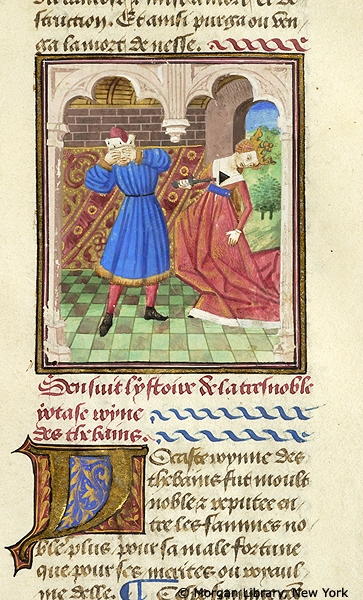 struction. Et ainsi purga ou ven
ga la mort de nesse.
Sensuit lystoire de la tresnoble
yotase royne
des thebains.
Jocaste royne des
thebains fut moult
noble z reputee en
tre les fammes no
ble plus pour sa male fortune
que pour ses merites ou royaul
me delle.
© Morgan Library, New York